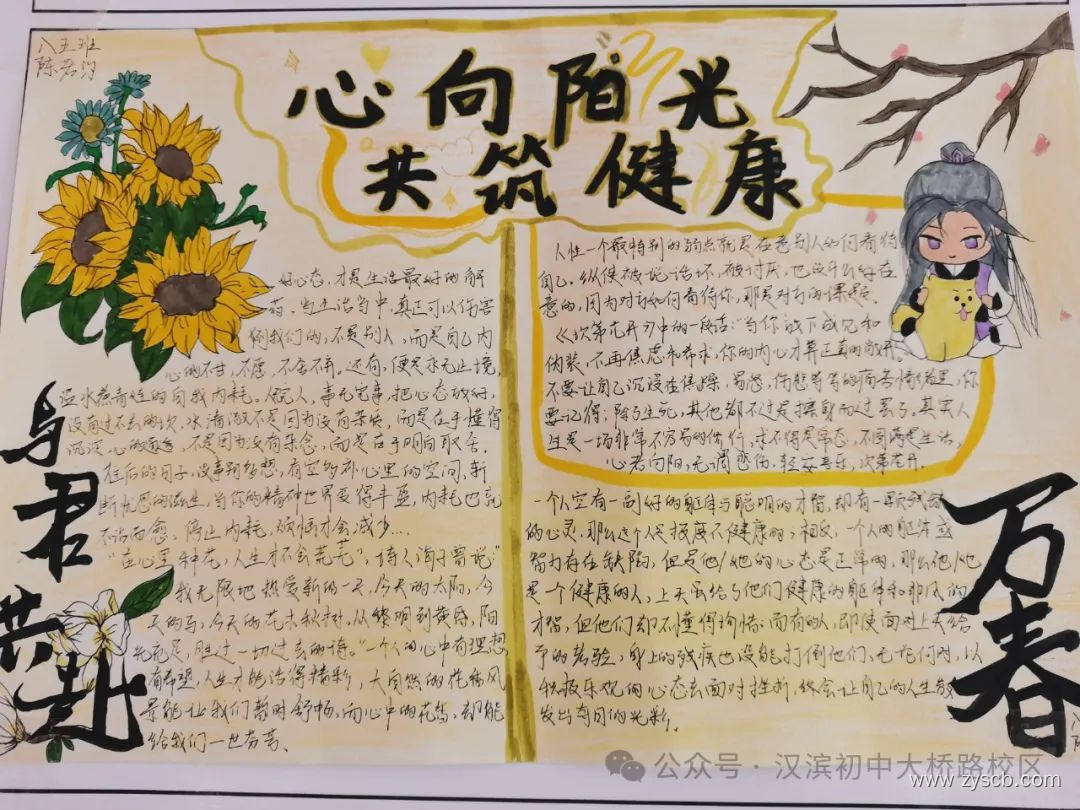 八五班
陈若
心向阳光
共筑健康
好心态,才是生活最好的解
药。当生活当中,真正可以伤害
倒我们的,不是别人,而是自己内
心的不甘,不愿,不舍不弃,还有,便是永无止境,
温水煮青蛙的自我内耗。人说人,事无完事,把心态放好,
没有过不去的坎,水清澈不是因为没有杂质,而是在于懂得
沉淀,心的通透,不是因为没有杂念,而是在于明白取舍。
往后的日子,没事别多想,有空多补心里的空间,斩
断忧思的滋生,当你的精神世界变得丰盈,内耗也就
不治而愈,停止内耗,烦恼才会减少…
"在心里种花,人生才不会荒芜",诗人汪子曾说:"
我无限地热爱新的一天,今天的太阳,今
天的马,今天的花木秋树,从黎明到黄昏,阳
光充足,胜过一切过去的诗。"一个人的心中有理想,
有希望,人生才能活得精彩,大自然的花香风
景能让我们暂时舒畅,而心中的花香,却能
给我们一世芬芳。
人性一个最特别的弱点就是在意别人如何看待
自己,纵使被说话坏,被讨厌,也没什么好在
意的,因为对方如何看待你,那是对方的课题。
《次第花开》中的一段话:"当你放下成见和
伪装,不再焦虑和希求,你的内心才算正真的敞开。
不要让自己沉浸在焦躁、易怒、伤悲等等的痛苦情绪里,你
要记得:除了生死,其他都不过是擦身而过罢了,其实人
生是一场非常不容易的修行,求不得是常态,不圆满是生活,
心若向阳,无谓悲伤,轻安喜乐,次第花开。
一个人空有一副好的躯体与聪明的才智,却有一颗残缺
的心灵,那么这个人是极度不健康的,相反,一个人的躯体或
智力存在缺陷,但是他/她的心态是正常的,那么他/她
是一个健康的人,上天虽给与他们健康的躯体和非凡的
才智,但他们却不懂得珍惜;而有的人,即使面对上天给
予的考验,身上的残疾也没能打倒他们,无论何时,以
积极乐观的心态去面对挫折,终会让自己的人生散
发出夺目的光彩。
与君共赴
万春
公众号·汉滨初中大桥路校区
www.zyscb.com